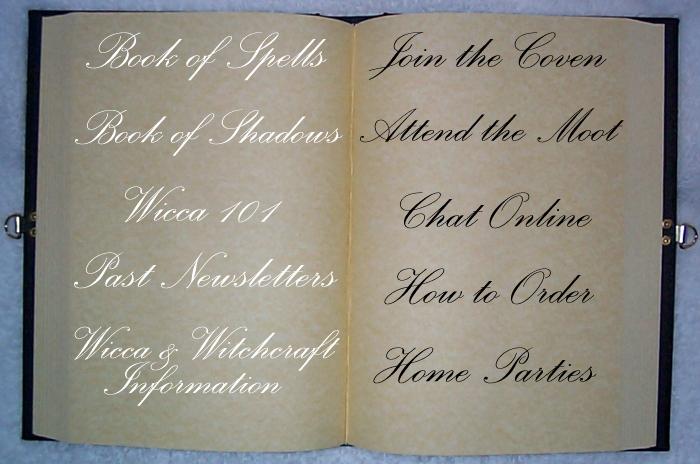 Book of Spells
Book of Shadows
Wicca 101
Past Newsletters
Wicca & Witchcraft
Information
Join the Coven
Attend the Moot
Chat Online
How to Order
Home Parties